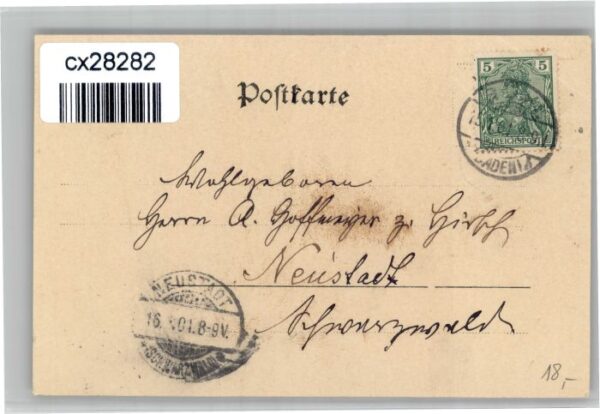 cx28282
Postkarte
5 5
REICHSPOST
BADEN
Wohlgeboren
Herrn A. z. Hirsch
Neustadt
Schwarzwald
NEUSTADT
16. .01.8-9V.
(SCHWARZWALD)
18,-